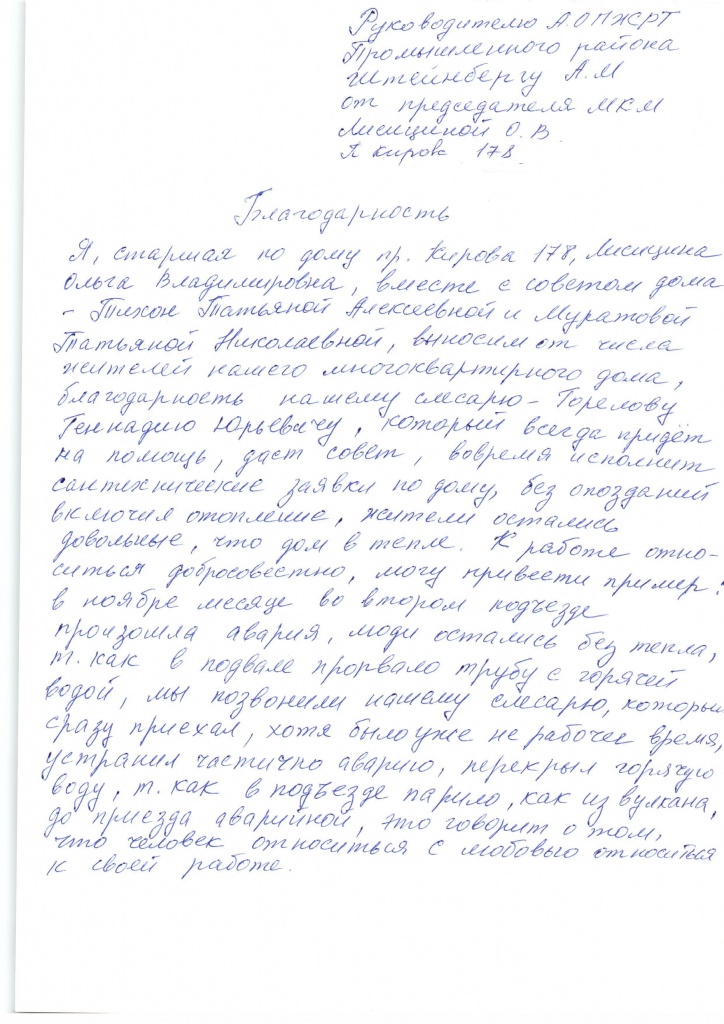 Руководителю АОПЖРТ
Промышленного района
Штейнбергу А.М
от председателя МКМ
Лисициной О.В.
П Кирова 178.
Благодарность
Я, старшая по дому пр. Кирова 178, Лисицина
Ольга Владимировна, вместе с советом дома
- Тихон Татьяной Алексеевной и Муратовой
Татьяной Николаевной, выносим от числа
жителей нашего многоквартирного дома,
благодарность нашему слесарю - Горелову
Геннадию Юрьевичу, который всегда придёт
на помощь, даст совет, вовремя исполнит
сантехнические заявки по дому, без опозданий
включил отопление, жители остались
довольные, что дом в тепле. К работе отно-
ситься добросовестно, могу привести пример:
в ноябре месяце во втором подъезде
произошла авария, люди остались без тепла,
т. как в подвале прорвало трубу с горячей
водой, мы позвонили нашему слесарю, который
сразу приехал, хотя было уже не рабочее время,
устранил частично аварию, перекрыл горячую
воду, т. как в подъезде парило, как из вулкана,
до приезда аварийной, это говорит о том,
что человек относиться с любовью относиться
к своей работе.